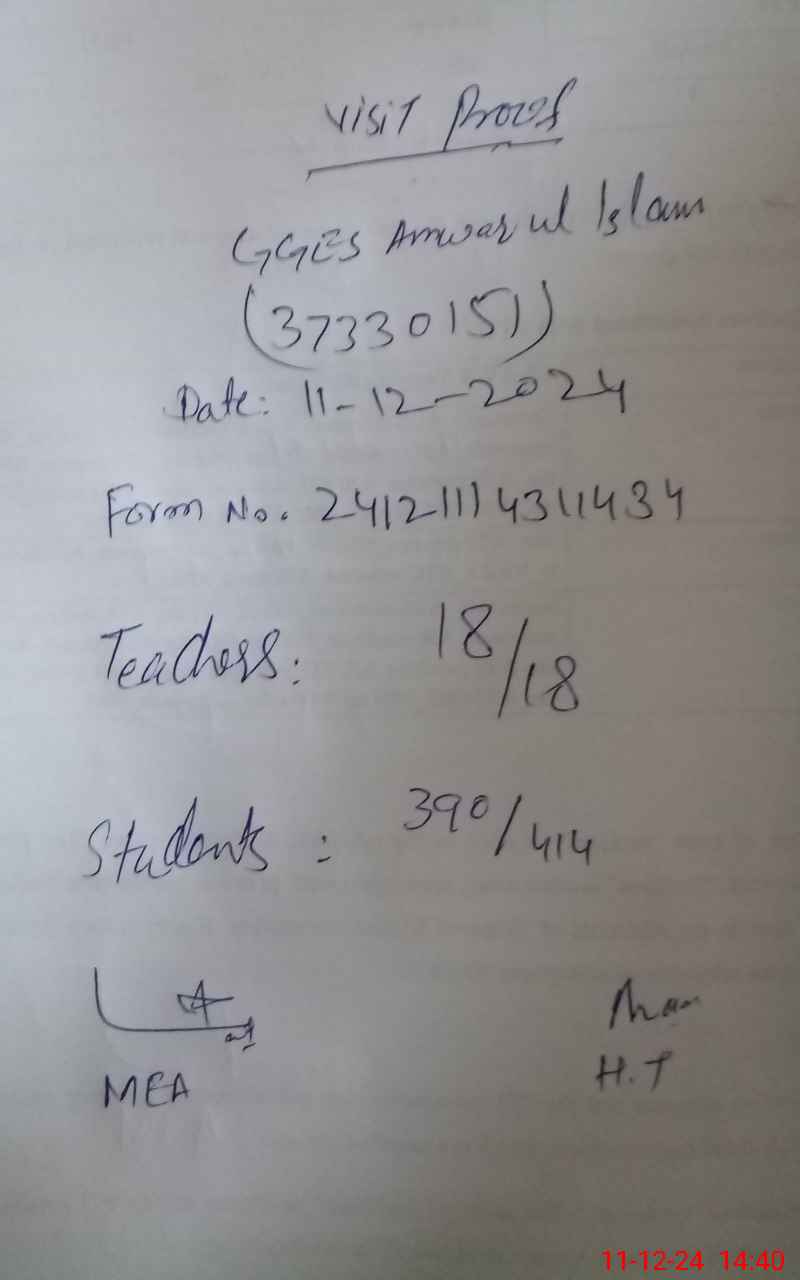 Visit Proof
GGES Anwar ul Islam
(37330151)
Date: 11-12-2024
Form No. 24121114311434
Teachers: 18/18
Students: 390/414
MEA
H.T
11-12-24 14:40